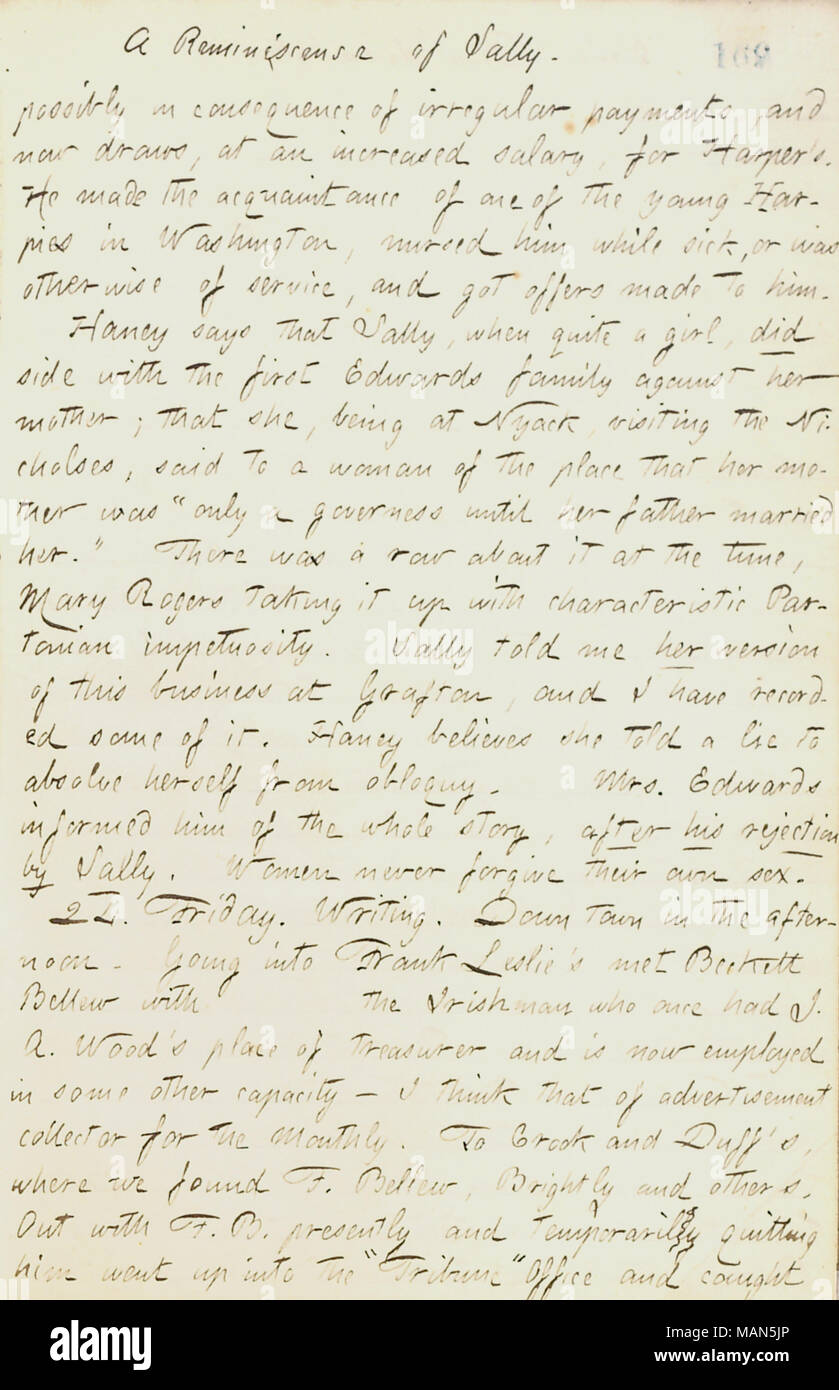 A Reminiscense of Sally.
169
possibly in consequence of irregular payments, and
now draws, at an increased salary, for Harper's.
He made the acquaintance of one of the young Har-
pies in Washington, nursed him while sick, or was
otherwise of service, and got offers made to him.
Haney says that Sally, when quite a girl, did
side with the first Edwards family against her
mother; that she, being at Nyack, visiting the Ni-
cholses, said to a woman of the place that her mo-
ther was "only a governess until her father married
her." There was a row about it at the time,
Mary Rogers taking it up with characteristic Par-
tonian impetuosity. Sally told me her version
of this business at Grafton, and I have record-
ed some of it. Haney believes she told a lie to
absolve herself from obloquy. Mrs. Edwards
informed him of the whole story, after his rejection
by Sally. Women never forgive their own sex.
21. Friday. Writing. Down town in the after-
noon. Going into Frank Leslie's met Beckett
Bellew with the Irishman who once had J.
A. Wood's place of treasurer and is now employed
in some other capacity — I think that of advertisement
collector for the Monthly. To Crook and Duff's,
where we found F. Bellew, Brightly and others.
Out with F. B. presently and temporarily quitting
him went up into the "Tribune" Office and caught
alamy
Image ID: MAN5JP
www.alamy.com